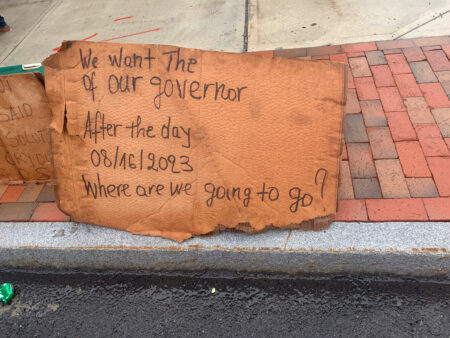 We want The
of our governor
After the day
08/16/2023
Where are we going to go?
SAID